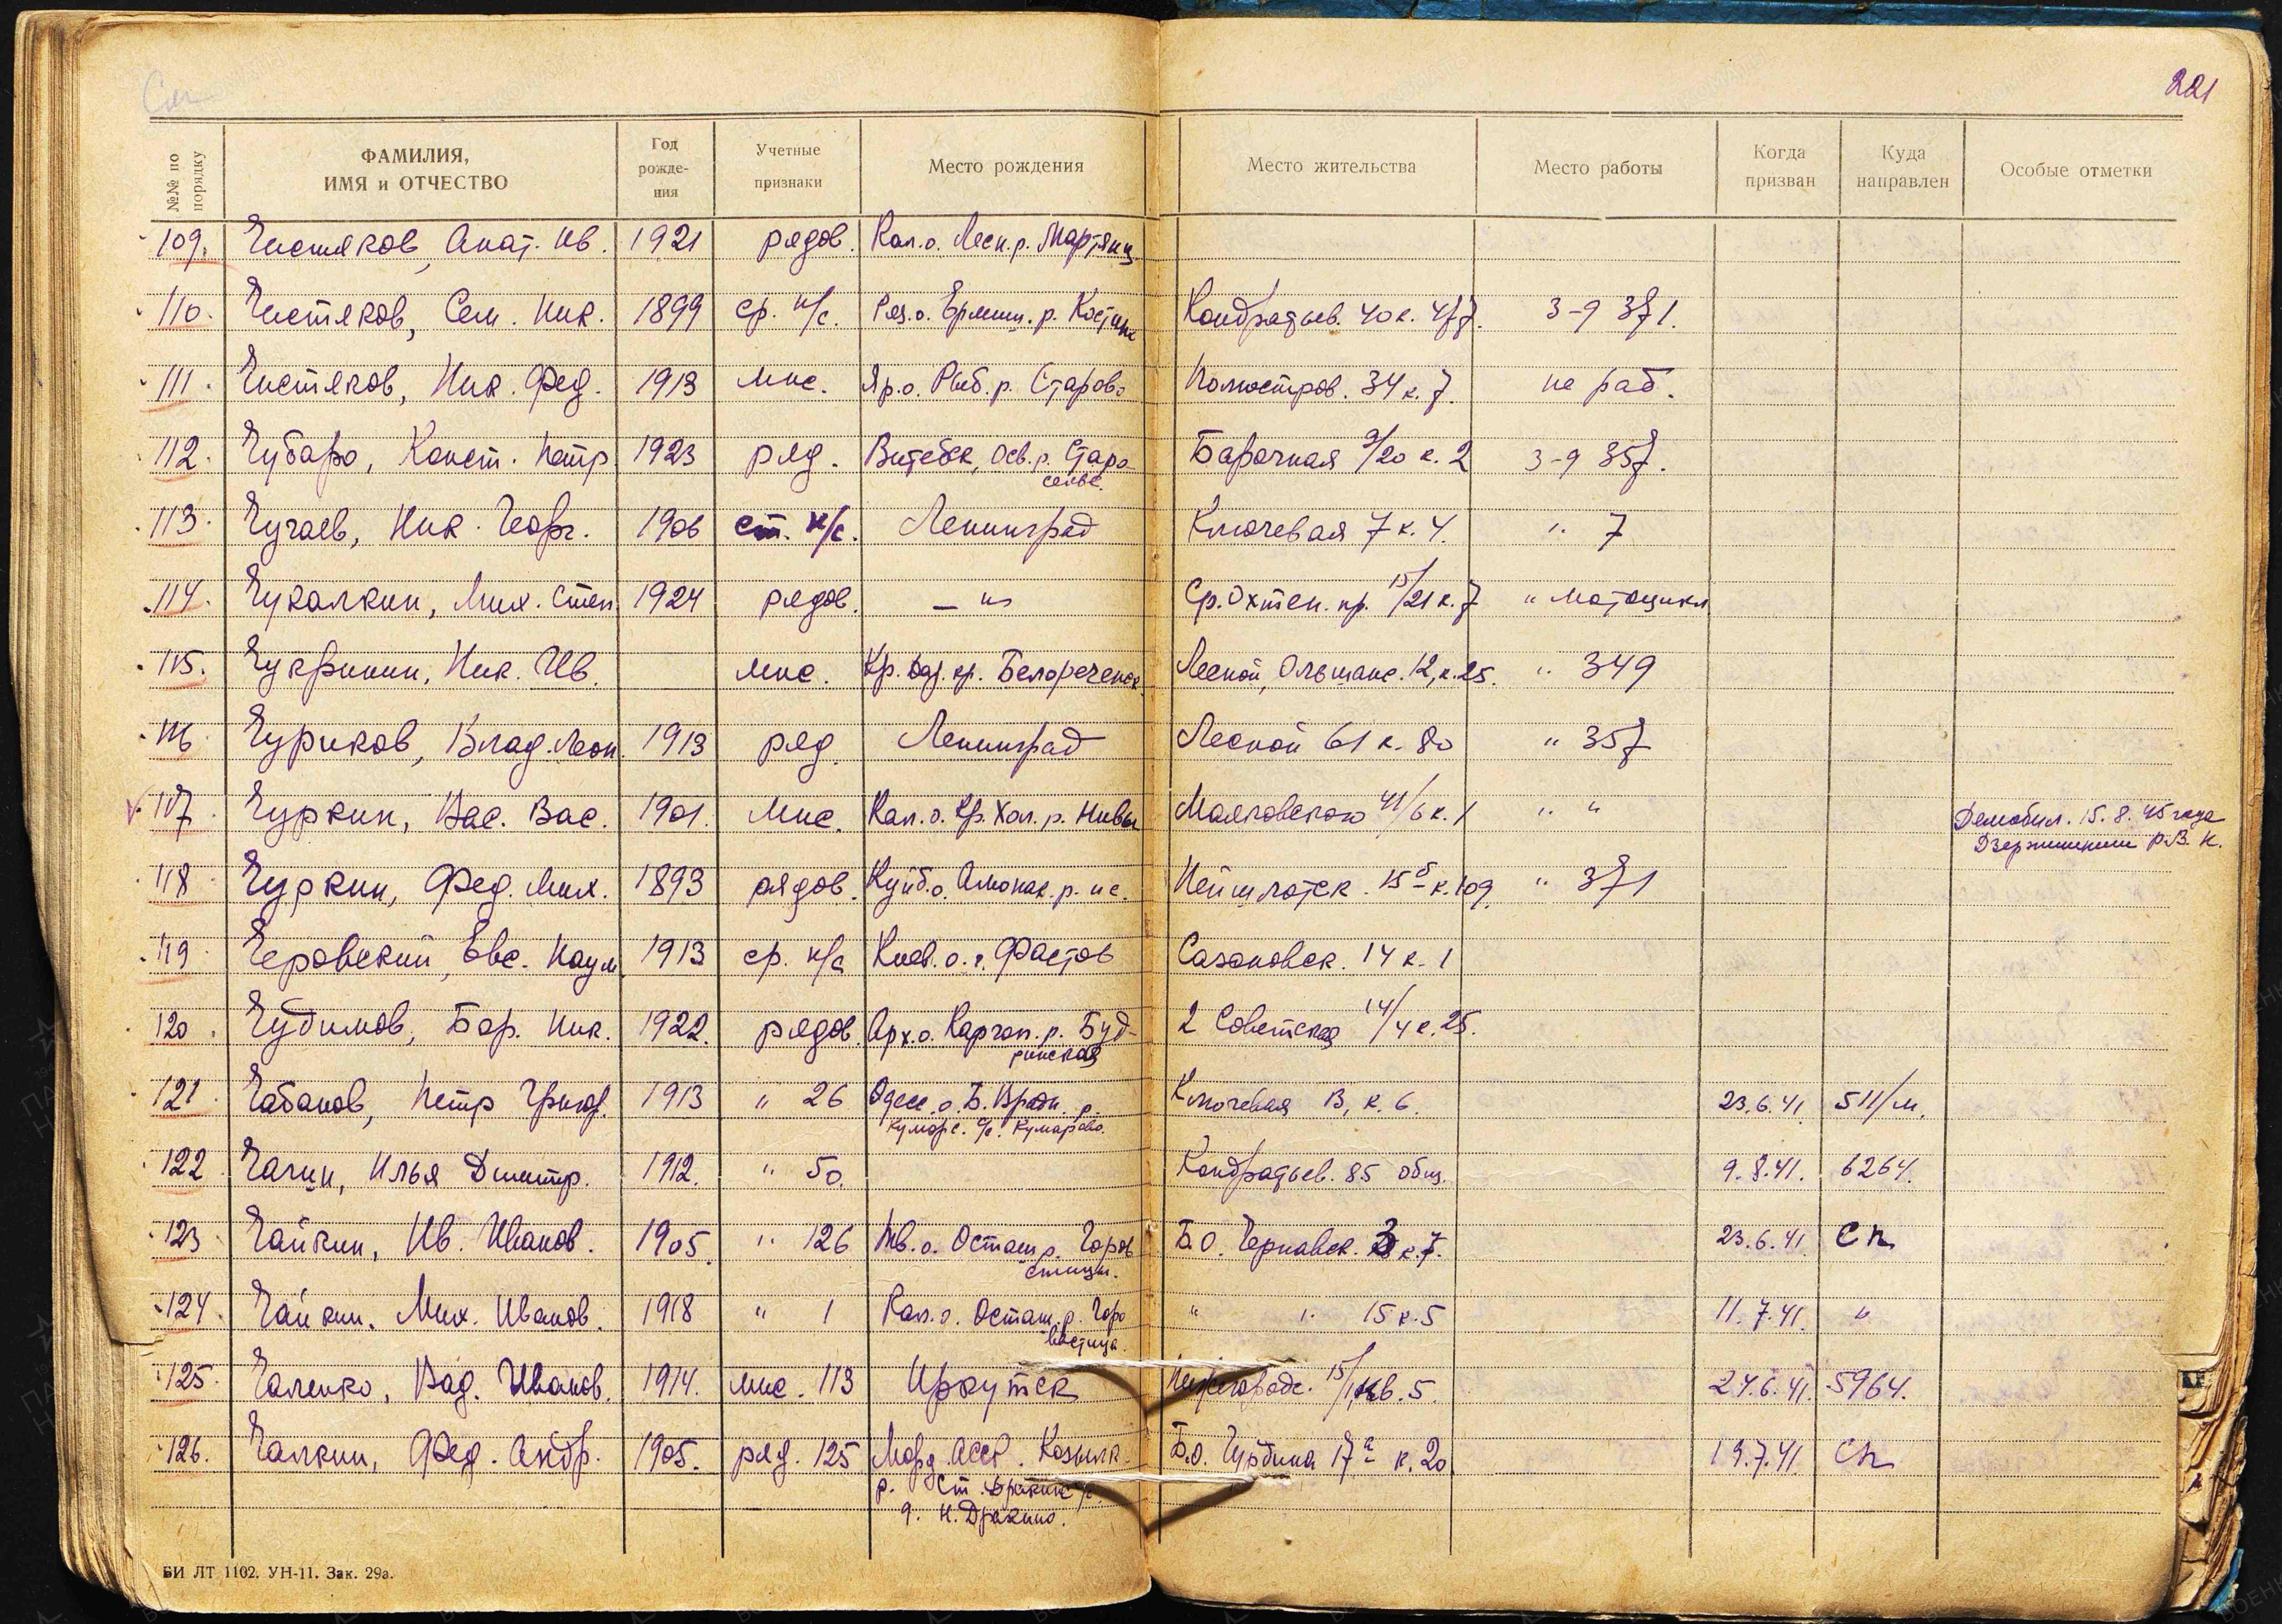 221
№№ по порядку
ФАМИЛИЯ, ИМЯ и ОТЧЕСТВО
Год рожде- ния
Учетные признаки
Место рождения
Место жительства
Место работы
Когда призван
Куда направлен
Особые отметки
109. Чистяков, Анат. Ив. 1921 рядов. Кал.о. Лесн.р. Мартяниц
110. Чистяков, Сем. Ник. 1899 ср. к/с. Ряз.о. Ермиш. р. Костино Кондратьев. 40 к. 477. 3-9 371.
111. Чистяков, Ник. Фед. 1913 мнс. Яр.о. Рыб.р. Старово Полюстров. 34 к. 7. не раб.
112. Чубаро, Конст. Петр. 1923 ряд. Витебск, Осв.р. Старо Барочная 9/20 к. 2 3-9 357.
сельс.
113. Чучаев, Ник. Георг. 1906 ст. к/с. Ленинград Ключевая 7 к. 4. " 7
114. Чукалкин, Мих. Степ. 1924 рядов. — " Ср. Охтен. пр. 15/21 к. 7 " Мотоцикл
115. Чукринин, Ник. Ив. мнс. Кр. кр. Белореченск Лесной, Ольшанс. 12, к. 25. " 349
116. Чуриков, Влад. Леон. 1913 ряд. Ленинград Лесной 61 к. 80 " 357
117. Чуркин, Вас. Вас. 1901. мнс. Кал.о. Кр. Хол. р. Нивы Маяковского 41/6 к. 1 " " Демобил. 15.8.45 года
Дзержинским Р.В.К.
118. Чуркин, Фед. Мих. 1893 рядов. Куйб.о. р. Нейшлотск. 15б к. 109. " 371
119. Черовский, Евс. Наум 1913 ср. к/с Киев. о. г. Фастов Сазоновск. 14 к. 1
120. Чудимов, Бор. Ник. 1922. рядов. Арх.о. Каргоп. р. Буд- 2 Советская 14/4 к. 25.
ринская
121. Чабанов, Петр Григор. 1913 " 26 Одесс.о. Б. Вради. р. Ключевая 13, к. 6. 23.6.41 511/м.
Кумарс. с/с. Кумарово.
122. Чагин, Илья Дмитр. 1912. " 50. Кондратьев. 85 общ. 9.8.41. 6264.
123. Чайкин, Ив. Иванов. 1905. " 126 Осташ р. Горов Б.О. Чернавск. 3 к. 7. 23.6.41 Сп
стицы.
124. Чайкин. Мих. Иванов. 1918 " 1 Кал.о. Осташ. р. Горо " " 15 к. 5 11.7.41. "
вастица.
125. Чаленко, Вад. Иванов. 1914. мнс. 113 Иркутск Нижегородс. кв. 5. 24.6.41. 5964.
126. Чалкин, Фед. Андр. 1905. ряд. 125 Морд. АССР. Ковылк. Б.О. Гурдина 17а к. 20 19.7.41. Сп
р. Ст. Дракинс. с/с.
д. Н. Дракино.
БИ ЛТ 1102. УН-11. Зак. 29а.